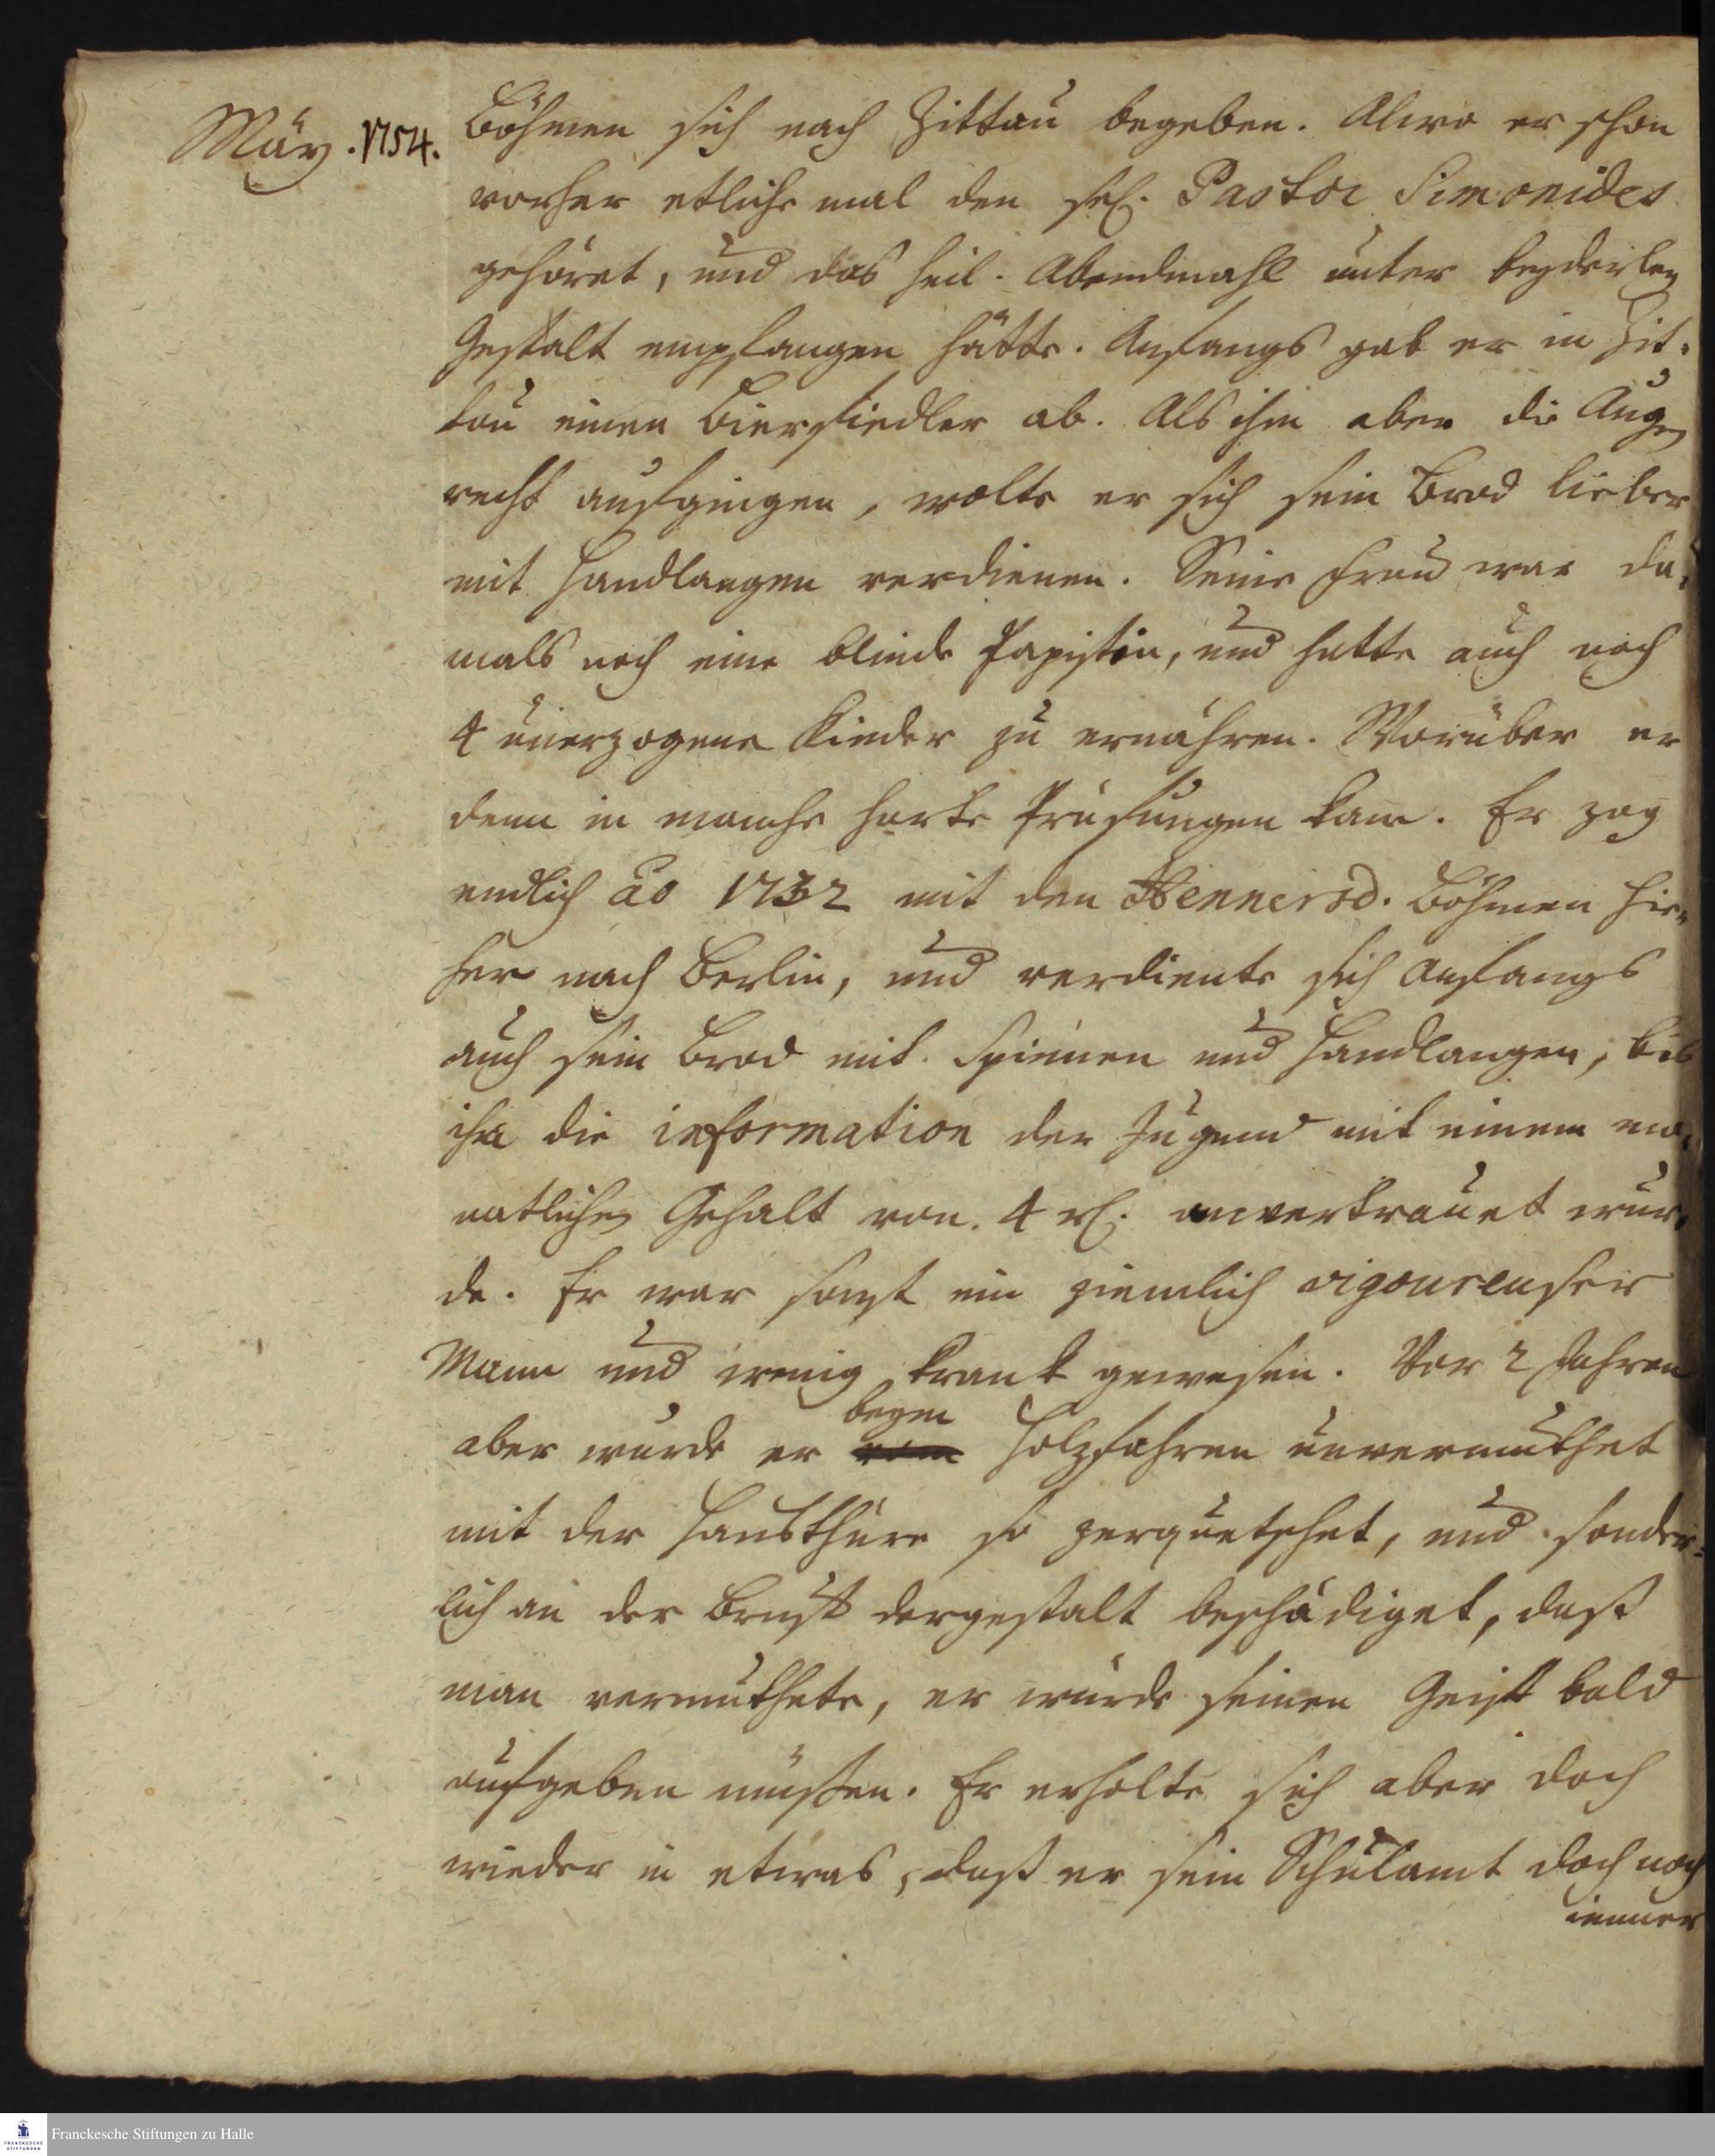 Mäy. 1754.
Böhmen sich nach Zittau begeben. Alwo er schon
vorher etliche mal den sel. Pastor Simonides
gehöret, und das heil. Abendmahl unter beyderley
Gestalt empfangen hätte. Anfangs gab er in Zit-
tau einen Bierfiedler ab. Als ihm aber die Augen
recht aufgingen, wolte er sich sein Brod lieber
mit Handlangen verdienen. Seine Frau war da-
mals noch eine blinde Papistin, und hatte auch noch
4 unerzogene Kinder zu ernähren. Worüber er
denn in manche harte Prüfungen kam. Er zog
endlich ao 1732 mit den Hennersd. Böhmen hie-
her nach Berlin, und verdiente sich Anfangs
auch sein Brod mit Spinnen und Handlangen, bis
ihm die information der Jugend mit einem mo-
natlichen Gehalt von 4 rl. anvertrauet wur-
de. Er war sonst ein ziemlich vigoureuser
Mann und wenig krank gewesen. Vor 2 Jahren
beym
aber wurde er vom Holzfahren unvermuthet
mit der Hausthüre so zerquetschet, und sonder-
lich an der Brust dergestalt beschädiget, daß
man vermuthete, er würde seinen Geist bald
aufgeben müßen. Er erholte sich aber doch
wieder in etwas, daß er sein Schulamt doch noch
immer
Franckesche Stiftungen zu Halle
FRANCKESCHE
STIFTUNGEN